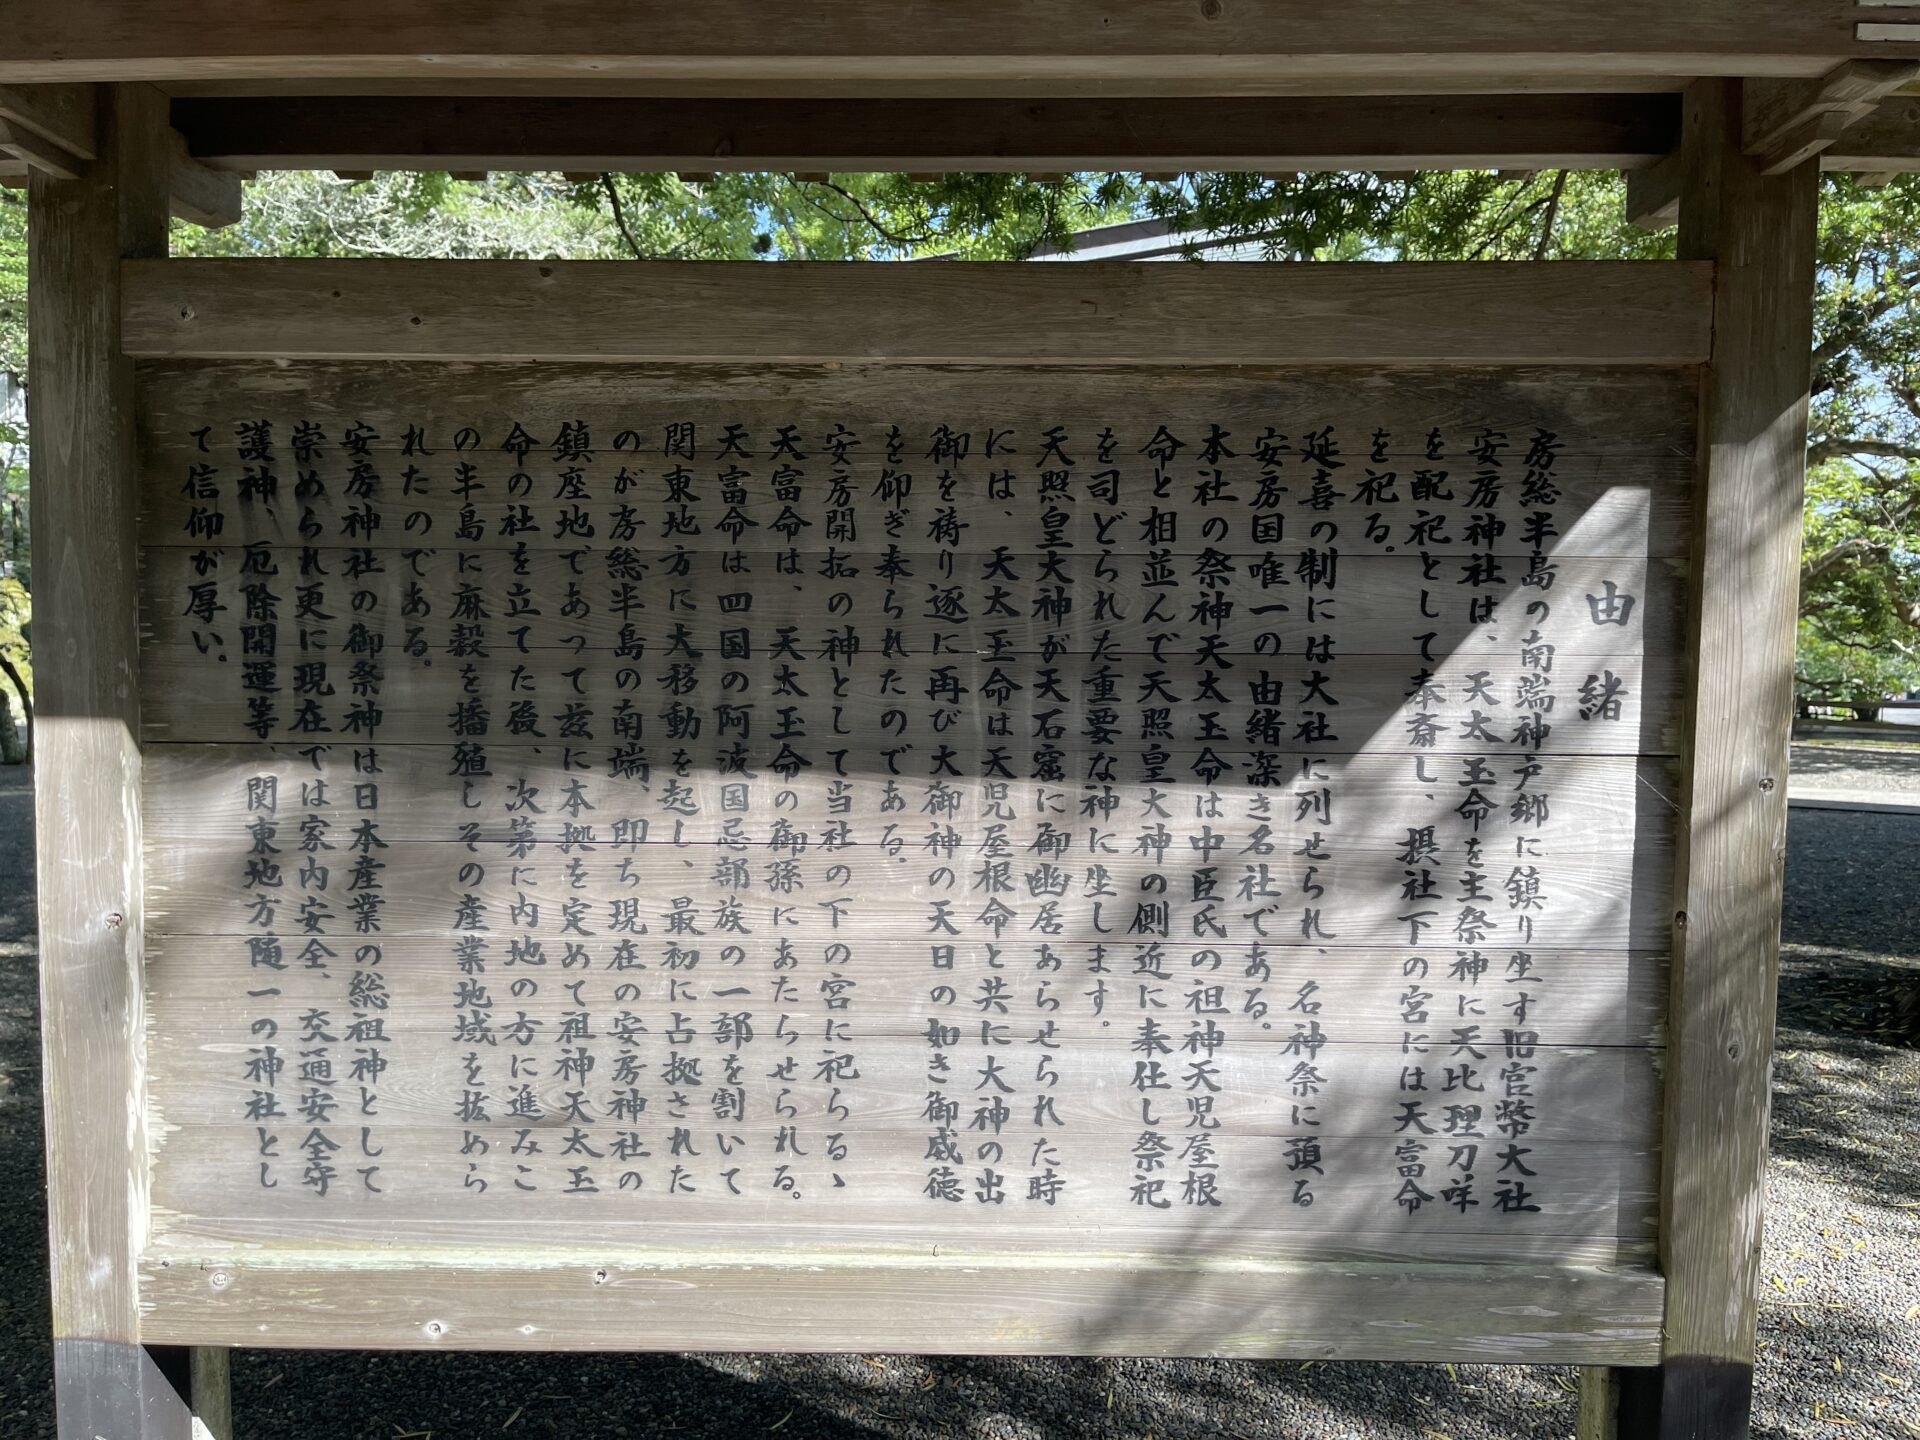 由緒
房総半島の南端神戸郷に鎮り坐す旧官幣大社
安房神社は、天太玉命を主祭神に天比理刀咩
を配祀として奉斎し、摂社下の宮には天富命
を祀る。
延喜の制には大社に列せられ、名神祭に預る
安房国唯一の由緒深き名社である。
本社の祭神天太玉命は中臣氏の祖神天児屋根
命と相並んで天照皇大神の側近に奉仕し祭祀
を司どられた重要な神に坐します。
天照皇大神が天石窟に御幽居あらせられた時
には、天太玉命は天児屋根命と共に大神の出
御を祷り逐に再び大御神の天日の如き御威徳
を仰ぎ奉られたのである。
安房開拓の神として当社の下の宮に祀らるゝ
天富命は、天太玉命の御孫にあたらせられる。
天富命は四国の阿波国忌部族の一部を割いて
関東地方に大移動を起し、最初に占拠された
のが房総半島の南端、即ち現在の安房神社の
鎮座地であって茲に本拠を定めて祖神天太玉
命の社を立てた後、次第に内地の方に進みこ
の半島に麻穀を播殖しその産業地域を拡めら
れたのである。
安房神社の御祭神は日本産業の総祖神として
崇められ更に現在では家内安全、交通安全守
護神、厄除開運等、関東地方随一の神社とし
て信仰が厚い。